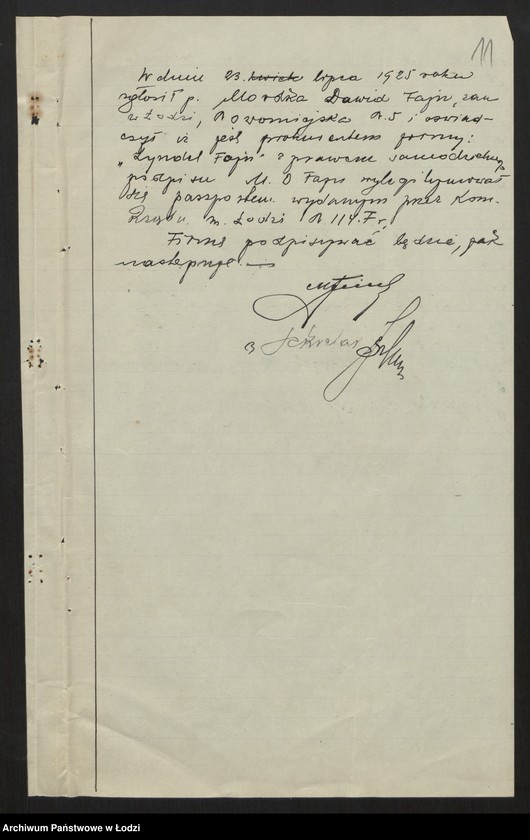 11
W dniu 23. kwiet lipca 1925 roku
zgłosił p. Mordka Dawid Fajn, zam
w Łodzi, Nowomiejska N. 5 i oświad-
czył iż jest prokurentem firmy:
"Zyndel Fajn" z prawem samodzielnego
podpisu M. D Fajn wylegitymował
się paszportem wydanym przez Kom.
Rządu m. Łodzi N 114. F,
Firmę podpisywać będzie, jak
następuje: —
MFajn
Sekretarz
Archiwum Państwowe w Łodzi